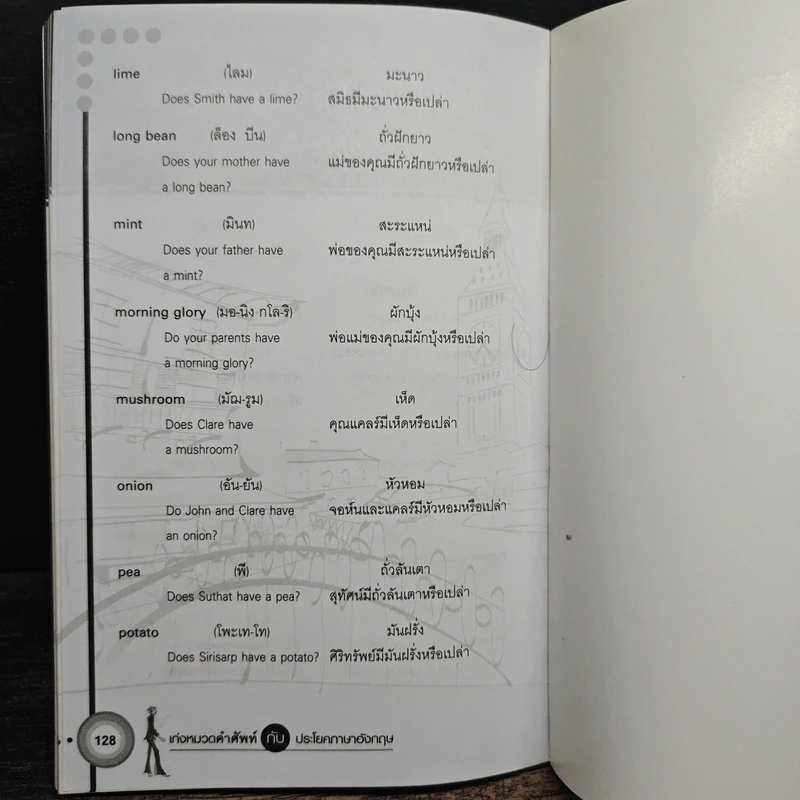 lime (ไลม) มะนาว
Does Smith have a lime? สมิธมีมะนาวหรือเปล่า
long bean (ล็อง บีน) ถั่วฝักยาว
Does your mother have แม่ของคุณมีถั่วฝักยาวหรือเปล่า
a long bean?
mint (มินท) สะระแหน่
Does your father have พ่อของคุณมีสะระแหน่หรือเปล่า
a mint?
morning glory (มอ-นิง กโล-ริ) ผักบุ้ง
Do your parents have พ่อแม่ของคุณมีผักบุ้งหรือเปล่า
a morning glory?
mushroom (มัฌ-รูม) เห็ด
Does Clare have คุณแคลร์มีเห็ดหรือเปล่า
a mushroom?
onion (อัน-ยัน) หัวหอม
Do John and Clare have จอห์นและแคลร์มีหัวหอมหรือเปล่า
an onion?
pea (พี) ถั่วลันเตา
Does Suthat have a pea? สุทัศน์มีถั่วลันเตาหรือเปล่า
potato (โพะเท-โท) มันฝรั่ง
Does Sirisarp have a potato? ศิริทรัพย์มีมันฝรั่งหรือเปล่า
128 เก่งหมวดคำศัพท์ กับ ประโยคภาษาอังกฤษ